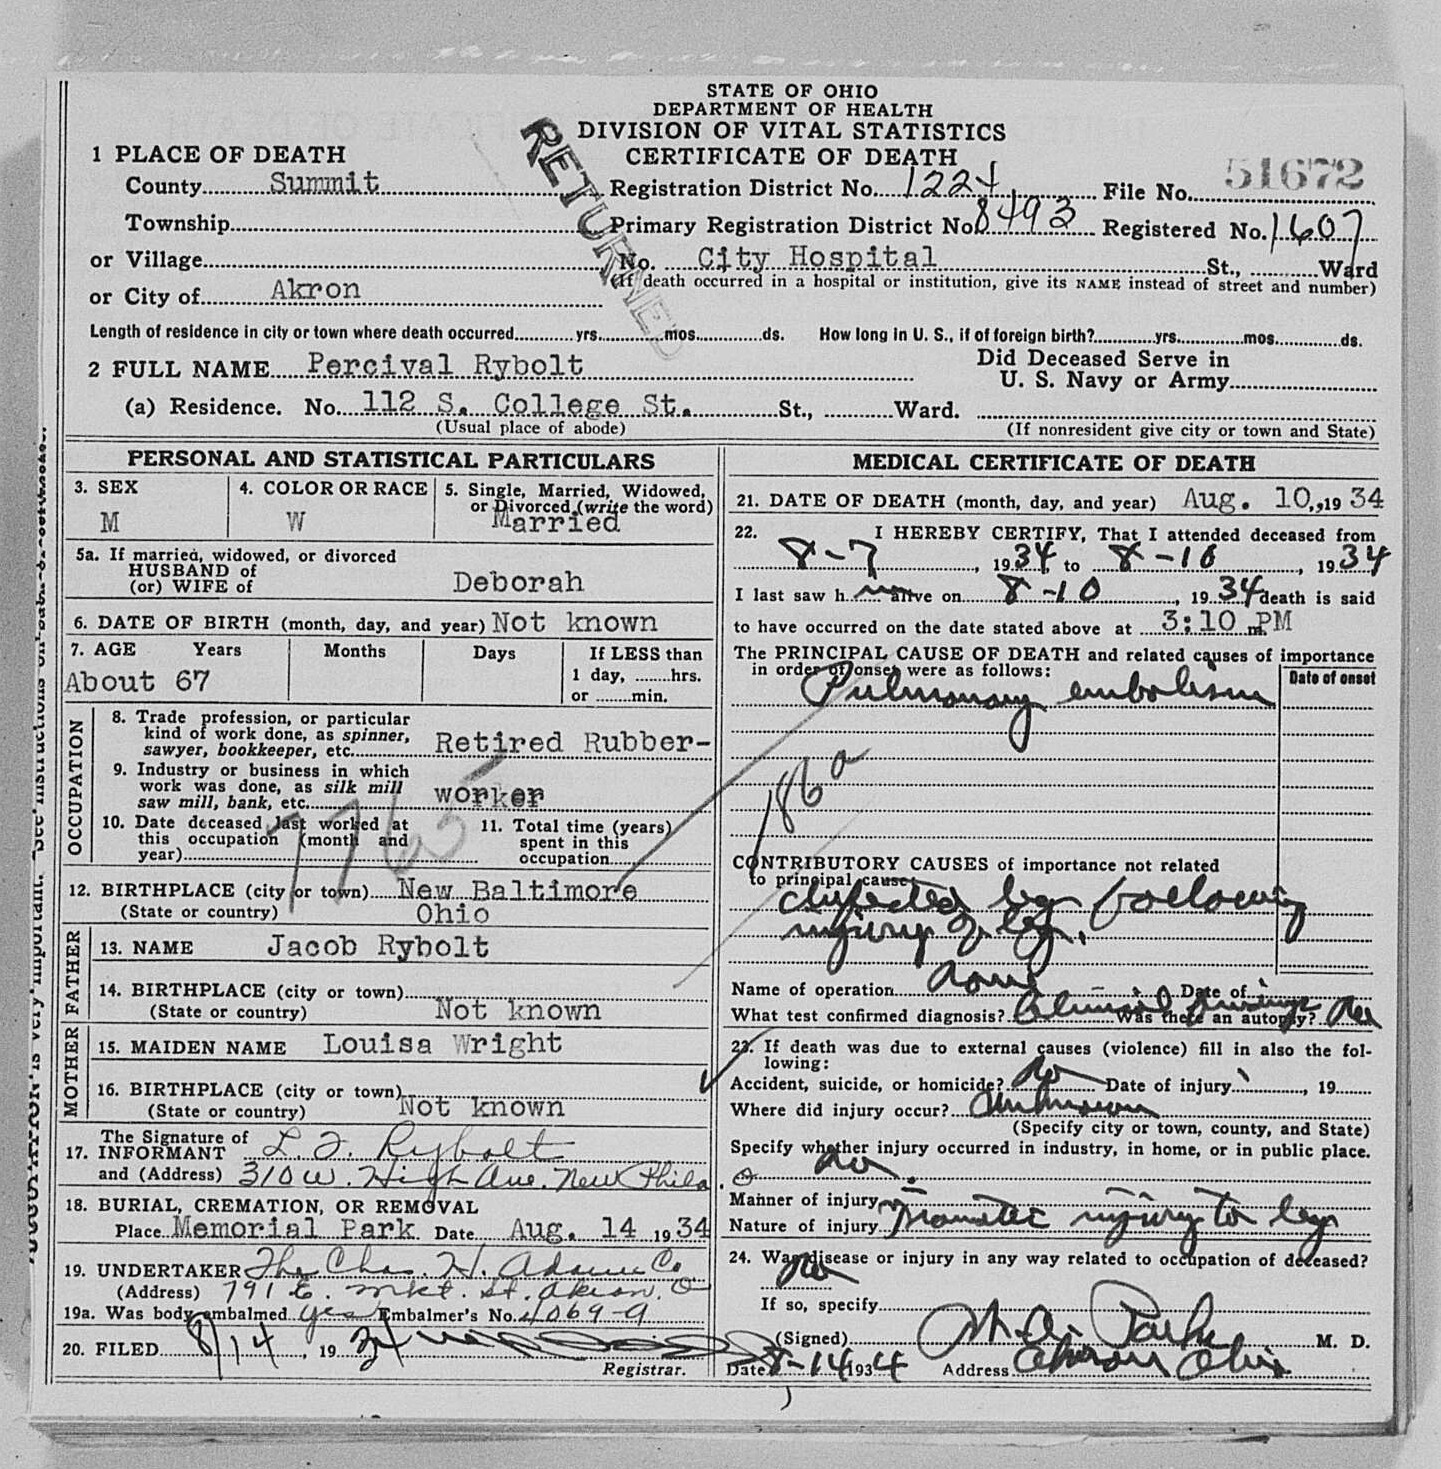 STATE OF OHIO
DEPARTMENT OF HEALTH
DIVISION OF VITAL STATISTICS
CERTIFICATE OF DEATH
RETURNED
51672
1 PLACE OF DEATH
County Summit Registration District No. 1224 File No.
Township Primary Registration District No. 8493 Registered No. 1607
or Village No. City Hospital St., Ward
(If death occurred in a hospital or institution, give its NAME instead of street and number)
or City of Akron
Length of residence in city or town where death occurred yrs. mos. ds. How long in U. S., if of foreign birth? yrs. mos. ds.
2 FULL NAME Percival Rybolt Did Deceased Serve in
U. S. Navy or Army
(a) Residence. No. 112 S. College St. St., Ward.
(Usual place of abode) (If nonresident give city or town and State)
PERSONAL AND STATISTICAL PARTICULARS
3. SEX 4. COLOR OR RACE 5. Single, Married, Widowed,
or Divorced (write the word)
M W Married
5a. If married, widowed, or divorced
HUSBAND of
(or) WIFE of Deborah
6. DATE OF BIRTH (month, day, and year) Not known
7. AGE Years Months Days If LESS than
1 day, hrs.
or min.
About 67
OCCUPATION
8. Trade profession, or particular
kind of work done, as spinner,
sawyer, bookkeeper, etc. Retired Rubber-
9. Industry or business in which
work was done, as silk mill
saw mill, bank, etc. worker
10. Date deceased last worked at
this occupation (month and
year)
11. Total time (years)
spent in this
occupation
7765
12. BIRTHPLACE (city or town) New Baltimore
(State or country) Ohio
FATHER
13. NAME Jacob Rybolt
14. BIRTHPLACE (city or town)
(State or country) Not known
MOTHER
15. MAIDEN NAME Louisa Wright
16. BIRTHPLACE (city or town)
(State or country) Not known
17. The Signature of
INFORMANT L. F. Rybolt
and (Address) 310 W. High Ave. New Phila. O
18. BURIAL, CREMATION, OR REMOVAL
Place Memorial Park Date Aug. 14 1934
19. UNDERTAKER The Chas. H. Adams Co
(Address) 791 E. Mkt. St. Akron. O
19a. Was body embalmed yes Embalmer's No. 4069-A
20. FILED 8/14, 1934
Registrar.
MEDICAL CERTIFICATE OF DEATH
21. DATE OF DEATH (month, day, and year) Aug. 10, 1934
22. I HEREBY CERTIFY, That I attended deceased from
8-7, 1934, to 8-10, 1934
I last saw h im alive on 8-10, 1934 death is said
to have occurred on the date stated above at 3:10 m. PM
The PRINCIPAL CAUSE OF DEATH and related causes of importance
in order of onset were as follows: Date of onset
Pulmonary embolism
186a
CONTRIBUTORY CAUSES of importance not related
to principal cause:
Infected leg following
injury of leg.
Name of operation none Date of
What test confirmed diagnosis? Clinical Was there an autopsy? no
23. If death was due to external causes (violence) fill in also the fol-
lowing:
Accident, suicide, or homicide? no Date of injury , 19
Where did injury occur? Unknown
(Specify city or town, county, and State)
Specify whether injury occurred in industry, in home, or in public place.
no
Manner of injury
Nature of injury Traumatic injury to leg
24. Was disease or injury in any way related to occupation of deceased?
no
If so, specify
(Signed) M. D.
Date 8-14 1934 Address Akron Ohio